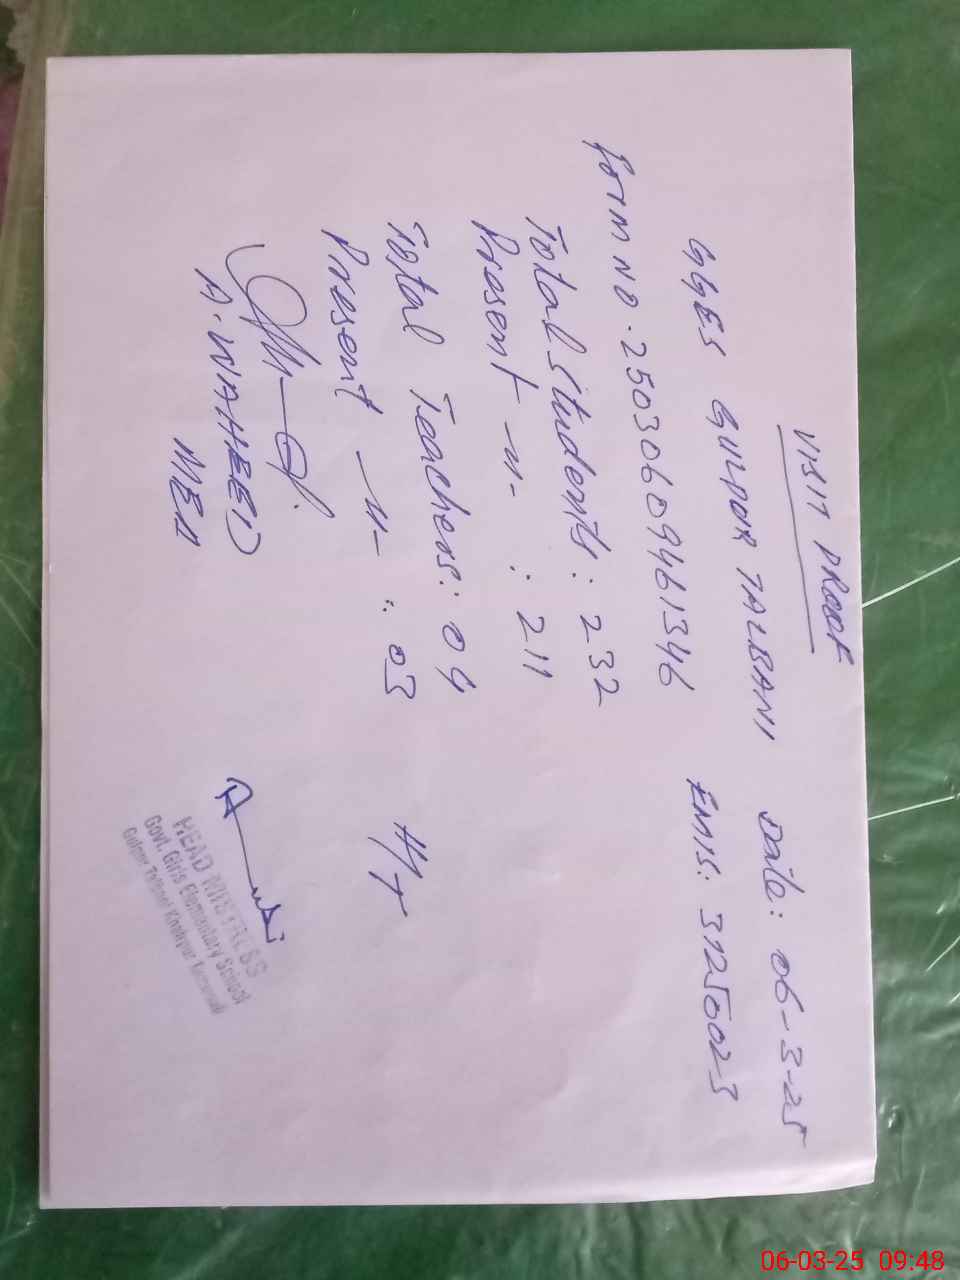 VISIT PROOF
Date: 06-3-25
GGES GULPUR TALBANI
EMIS: 31250023
Form NO. 25030609461346
Total Students: 232
Present -〃- : 211
Total Teachers: 04
Present -〃- : 03
H/T
A. WAHEED
MEA
HEAD MISTRESS
Govt. Girls Elementary School
06-03-25 09:48